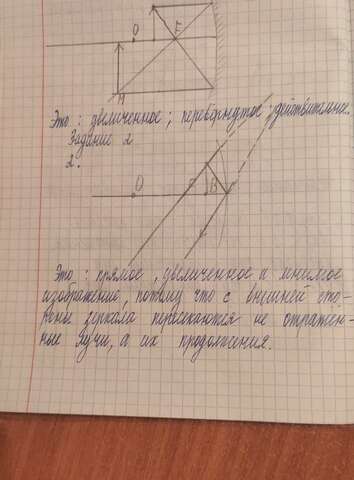 O F
M
Это: увеличенное; перевернутое; действительное.
Задание 2
2.
O F B
Это: прямое, увеличенное и мнимое
изображение, потому что с внешней сто-
роны зеркала пересекаются не отражен-
ные лучи, а их продолжения.